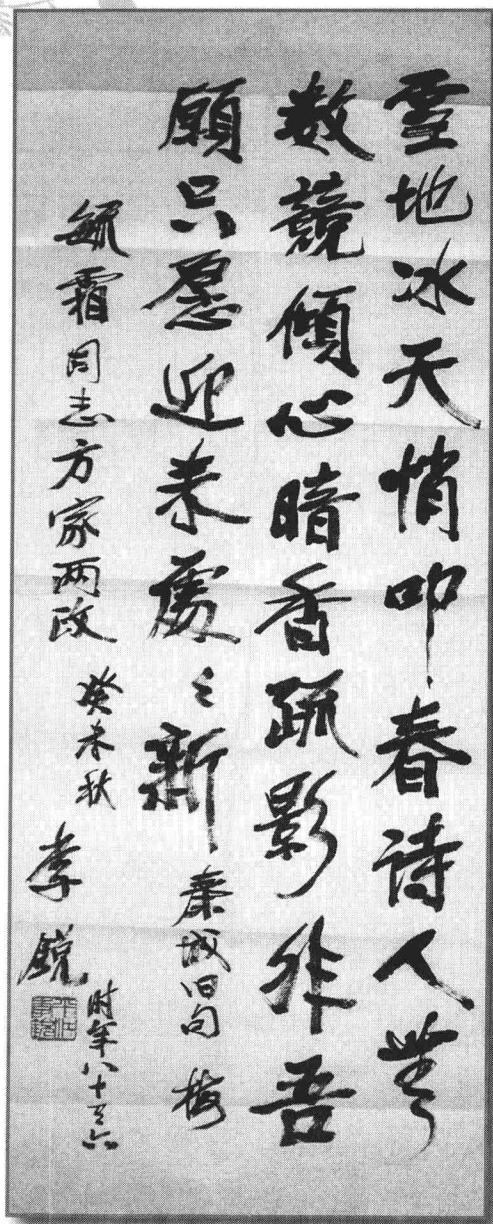 雪地冰天悄叩春诗人无
数竞倾心暗香疏影非吾
愿只愿迎来处々新 秦城旧句 梅
毓霜同志方家两政 癸未秋
李锐 时年八十有六